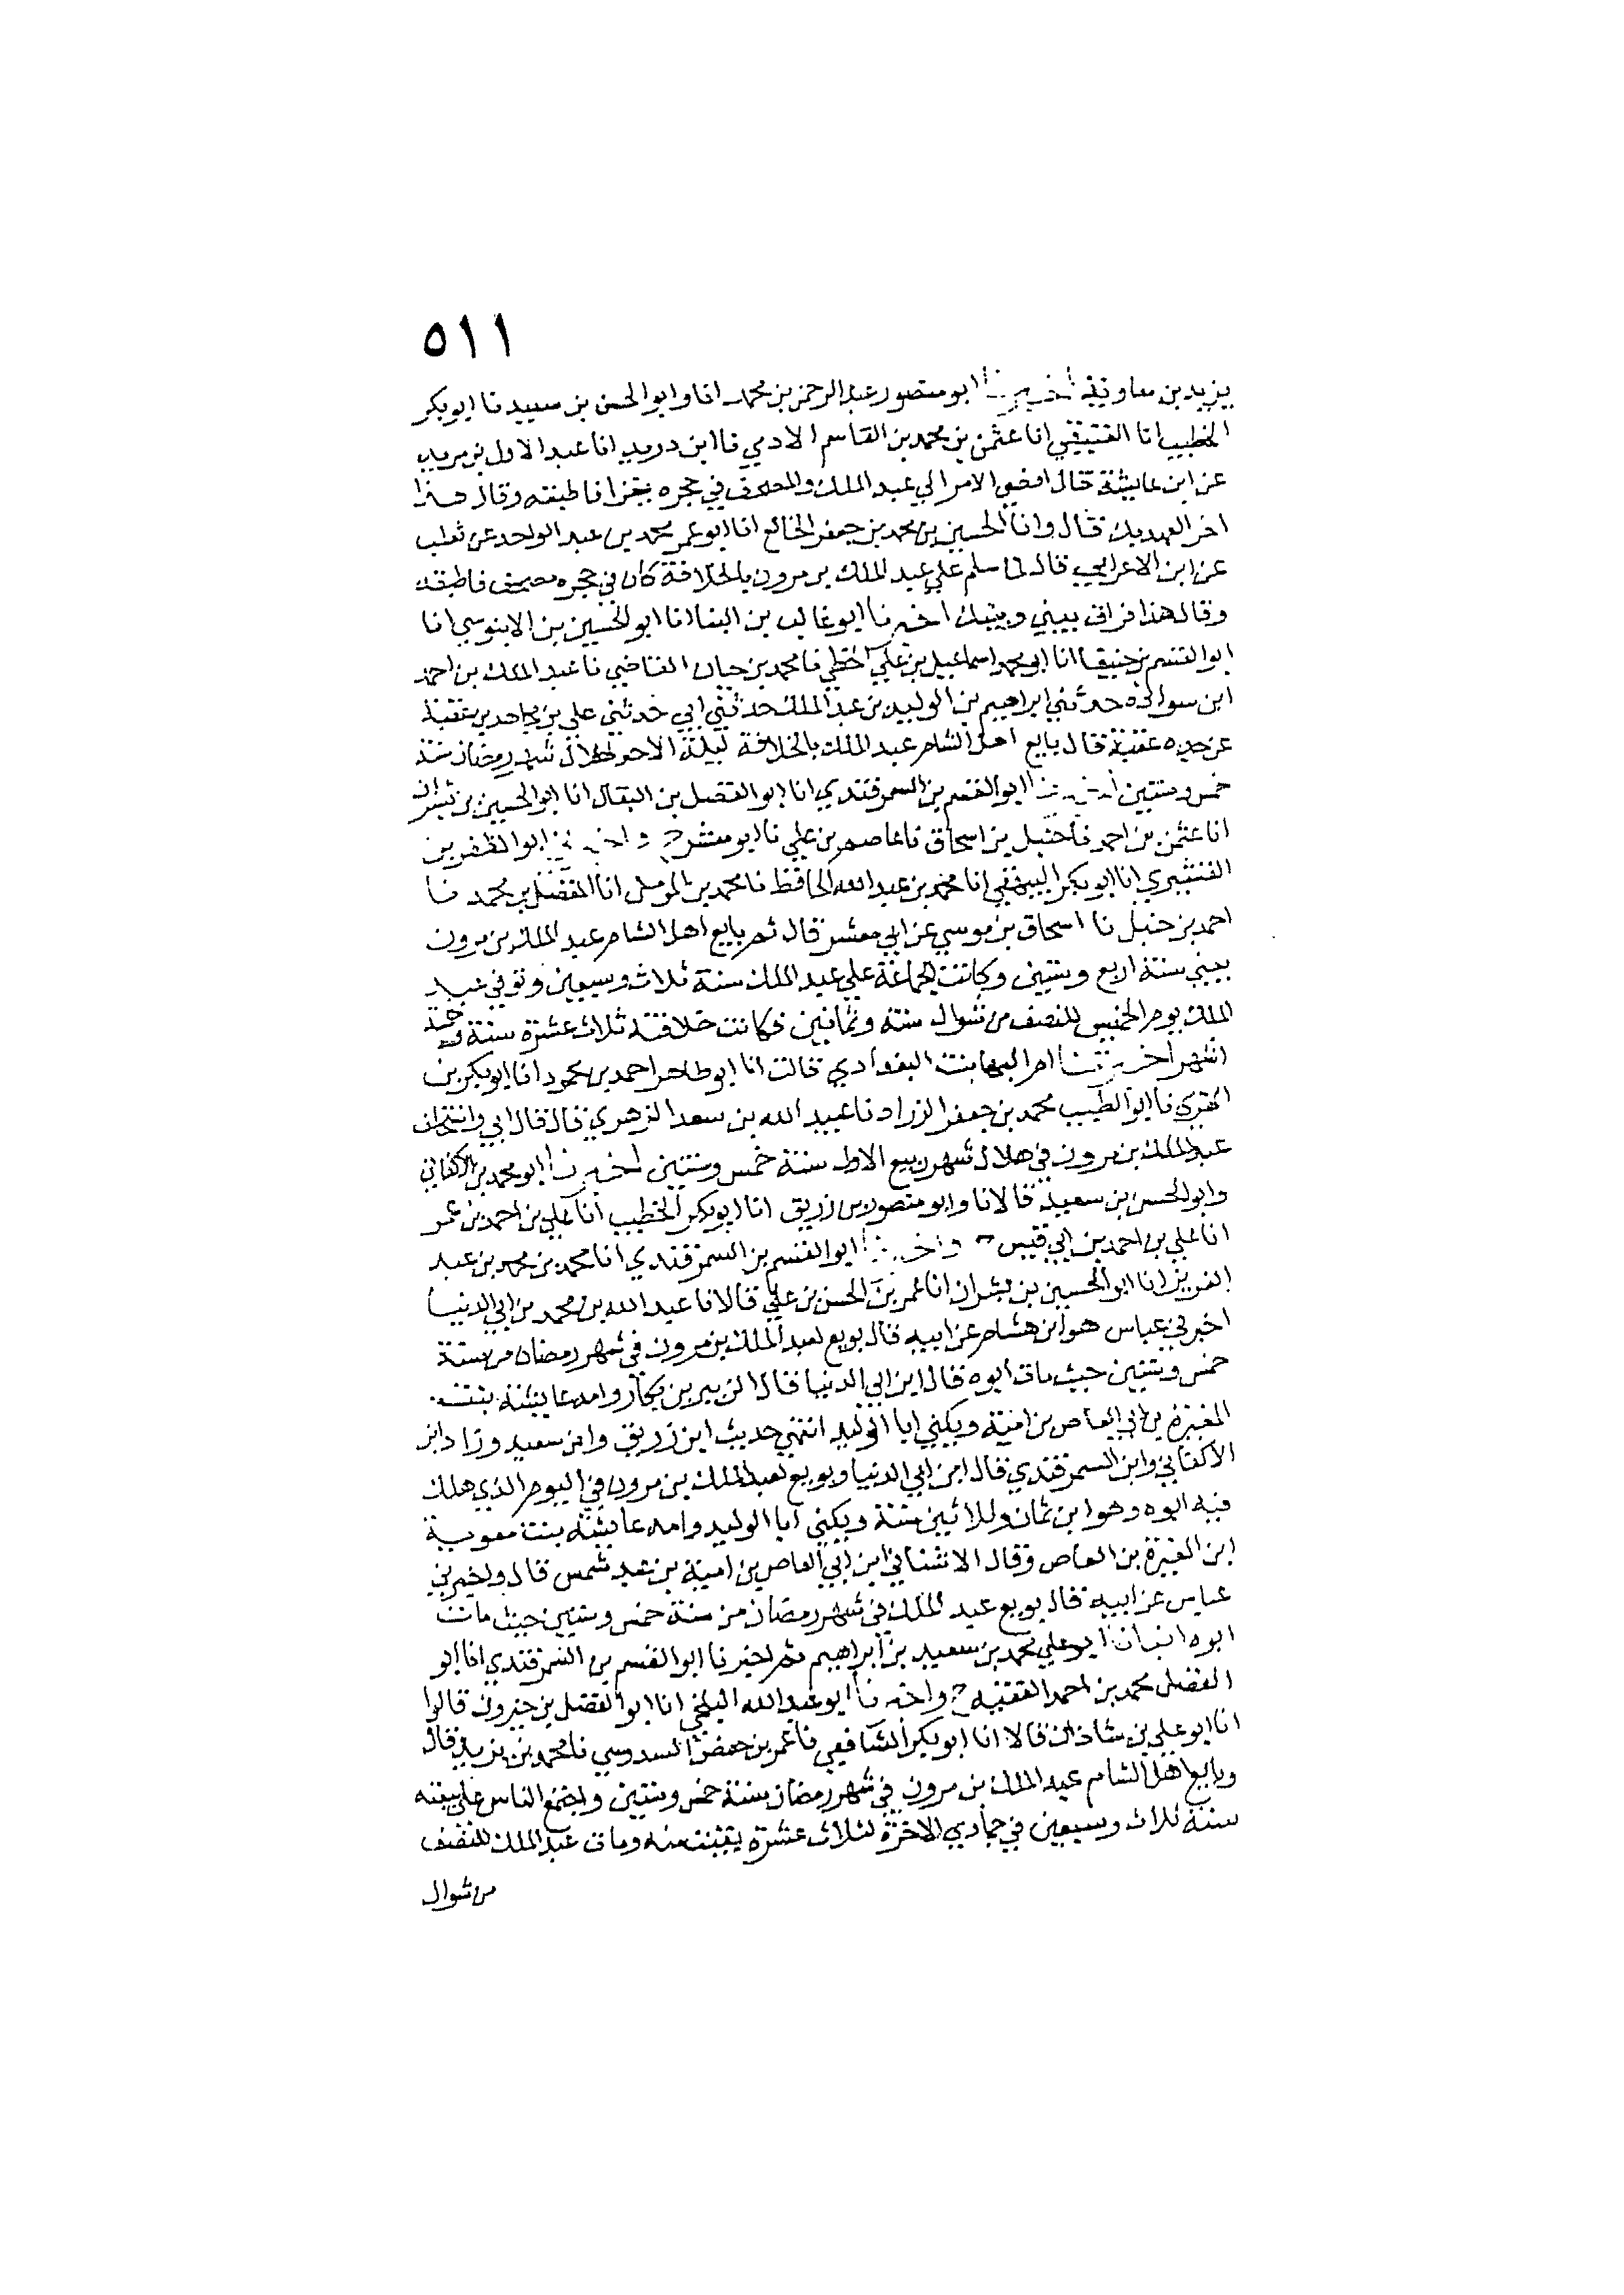 ٥١١
يزيد بن معاوية أخبرنا ابو منصور عبد الرحمن بن محمد انا وابو الحسن بن سعيد نا ابو بكر
الخطيب انا العتيقي انا عثمن بن محمد بن القاسم الادمي نا ابن دريد انا عبد الاول بن مريد
عن ابن عايشة قال افضي الامر الي عبد الملك والمصحف في حجره يقرا فاطبقه وقال هذا
اخر العهد بك قال وانا الحسين بن محمد بن جعفر الخالع انا ابو عمر محمد بن عبد الواحد عن ثعلب
عن ابن الاعرابي قال لما سلم علي عبد الملك بن مرون بالخلافة كان في حجره مصحف فاطبقه
وقال هذا فراق بيني وبينك اخبرنا ابو غالب بن البنا انا ابو الحسين بن الابنوسي انا
ابو القسم بن حنيقا انا ابو محمد اسماعيل بن علي الخطبي نا محمد بن حيان القاضي نا عبد الملك بن احمد
ابن سوادة حدثني ابراهيم بن الوليد بن عبد الملك حدثني ابي حدثني علي بن مجاهد بن عقبة
عن جده عقبة قال بايع اهل الشام عبد الملك بالخلافة ليلة الاحد لهلال شهر رمضان سنة
خمس وستين أخبرنا ابو القسم بن السمرقندي انا ابو الفضل بن البقال انا ابو الحسين بن بشران
انا عثمن بن احمد نا حنبل بن اسحاق نا عاصم بن علي نا ابو معشر ح واخبرنا ابو المظفر بن
القشيري انا ابو بكر البيهقي انا محمد بن عبد الله الحافظ نا محمد بن المومل انا الفضل بن محمد نا
احمد بن حنبل نا اسحاق بن موسي عن ابي معشر قال ثم بايع اهل الشام عبد الملك بن مرون
يعني سنة اربع وستين وكانت الجماعة علي عبد الملك سنة ثلاث وسبعين وتوفي عبد
الملك يوم الخميس للنصف من شوال سنة وثمانين فكانت خلافته ثلاث عشرة سنة وخمسة
اشهر أخبرتنا ام البها بنت البغدادي قالت انا ابو طاهر احمد بن محمود انا ابو بكر بن
المقري نا ابو الطيب محمد بن جعفر الزراد نا عبيد الله بن سعد الزهري قال قال ابي واستخلف
عبد الملك بن مرون في هلال شهر ربيع الاول سنة خمس وستين اخبرنا ابو محمد بن الاكفاني
وابو الحسن بن سعيد قالا نا وابو منصور بن زريق انا ابو بكر الخطيب انا علي بن احمد بن عمر
انا علي بن احمد بن ابي قيس ح واخبرنا ابو القسم بن السمرقندي انا محمد بن محمد بن عبد
العزيز انا ابو الحسين بن بشران انا عمر بن الحسن بن علي قالا نا عبد الله بن محمد بن ابي الدنيا
اخبرني عباس هو ابن هشام عن ابيه قال بويع لعبد الملك بن مرون في شهر رمضان من سنة
خمس وستين حيث مات ابوه قال ابن ابي الدنيا قال الزبير بن بكار وامه عايشة بنت
المغيرة بن ابي العاص بن امية ويكني ابا الوليد انتهي حديث ابن زريق وابن سعيد وزاد ابن
الاكفاني وابن السمرقندي قال ابن ابي الدنيا وبويع لعبد الملك بن مرون في اليوم الذي هلك
فيه ابوه وهو ابن ثمان وثلاثين سنة ويكني ابا الوليد وامه عايشة بنت معوية
ابن المغيرة بن العاص وقال الاشناني ابن ابي العاص بن امية بن عبد شمس قال واخبرني
عباس عن ابيه قال بويع عبد الملك في شهر رمضان من سنة خمس وستين حيث مات
ابوه انبانا ابو علي محمد بن سعيد بن ابراهيم ثم اخبرنا ابو القسم بن السمرقندي انا ابو
الفضل محمد بن احمد الفقيه ح واخبرنا ابو عبد الله البلخي انا ابو الفضل بن خيرون قالوا
انا ابو علي بن شاذان قالا انا ابو بكر الشافعي نا عمر بن حفص السدوسي نا محمد بن يزيد قال
وبايع اهل الشام عبد الملك بن مرون في شهر رمضان سنة خمس وستين واجتمع الناس علي بيعته
سنة ثلاث وسبعين في جمادي الاخرة لثلاث عشرة بقيت منه ومات عبد الملك للنصف
من شوال